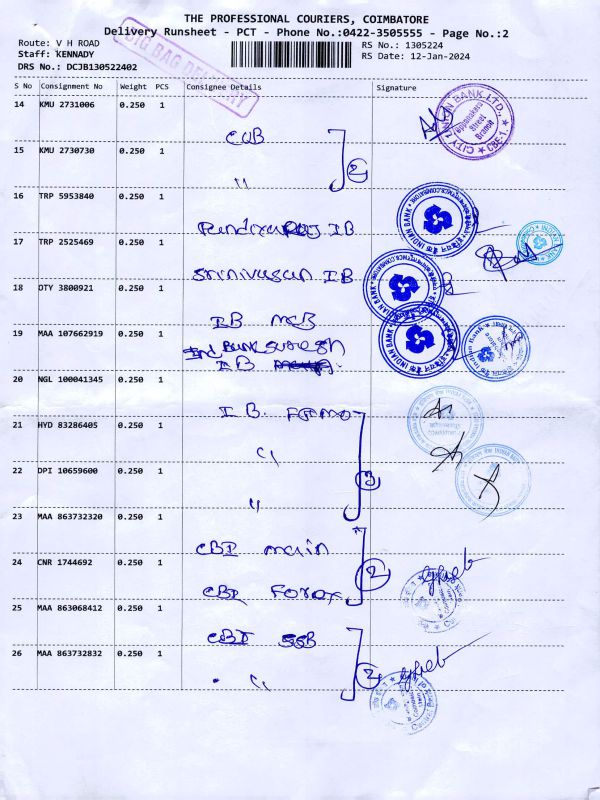 THE PROFESSIONAL COURIERS, COIMBATORE
Delivery Runsheet - PCT - Phone No.:0422-3505555 - Page No.:2
Route: V H ROAD
RS No.: 1305224
Staff: KENNADY
RS Date: 12-Jan-2024
DRS No.: DCJB130522402
BIG BAG DELIVERY
S No Consignment No Weight PCS Consignee Details Signature
14 KMU 2731006 0.250 1
CUB
15 KMU 2730730 0.250 1
" 2
16 TRP 5953840 0.250 1
IB
17 TRP 2525469 0.250 1
Srinivasan IB
18 DTY 3800921 0.250 1
IB MCB
19 MAA 107662919 0.250 1
Ind Bank Suresh
IB
20 NGL 100041345 0.250 1
IB.
21 HYD 83286405 0.250 1
"
22 DPI 10659600 0.250 1
" 3
23 MAA 863732320 0.250 1
CBI main
24 CNR 1744692 0.250 1
CBI Forex 2
25 MAA 863068412 0.250 1
CBI SSB
26 MAA 863732832 0.250 1
" 2
CITY UNION BANK LTD.,
Street
Branch
CBE-1.
INDIAN BANK
INDIAN BANK
INDIAN BANK